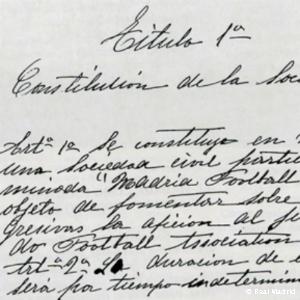 Título 1º
Constitución de la Soc
Artº 1º Se constituye en
una Sociedad civil partic
minada "Madrid Football
objeto de fomentar sobre
gresivas la aficion al f
do Football Association
Artº 2º La duracion de
será por tiempo indetermin
© Real Madrid